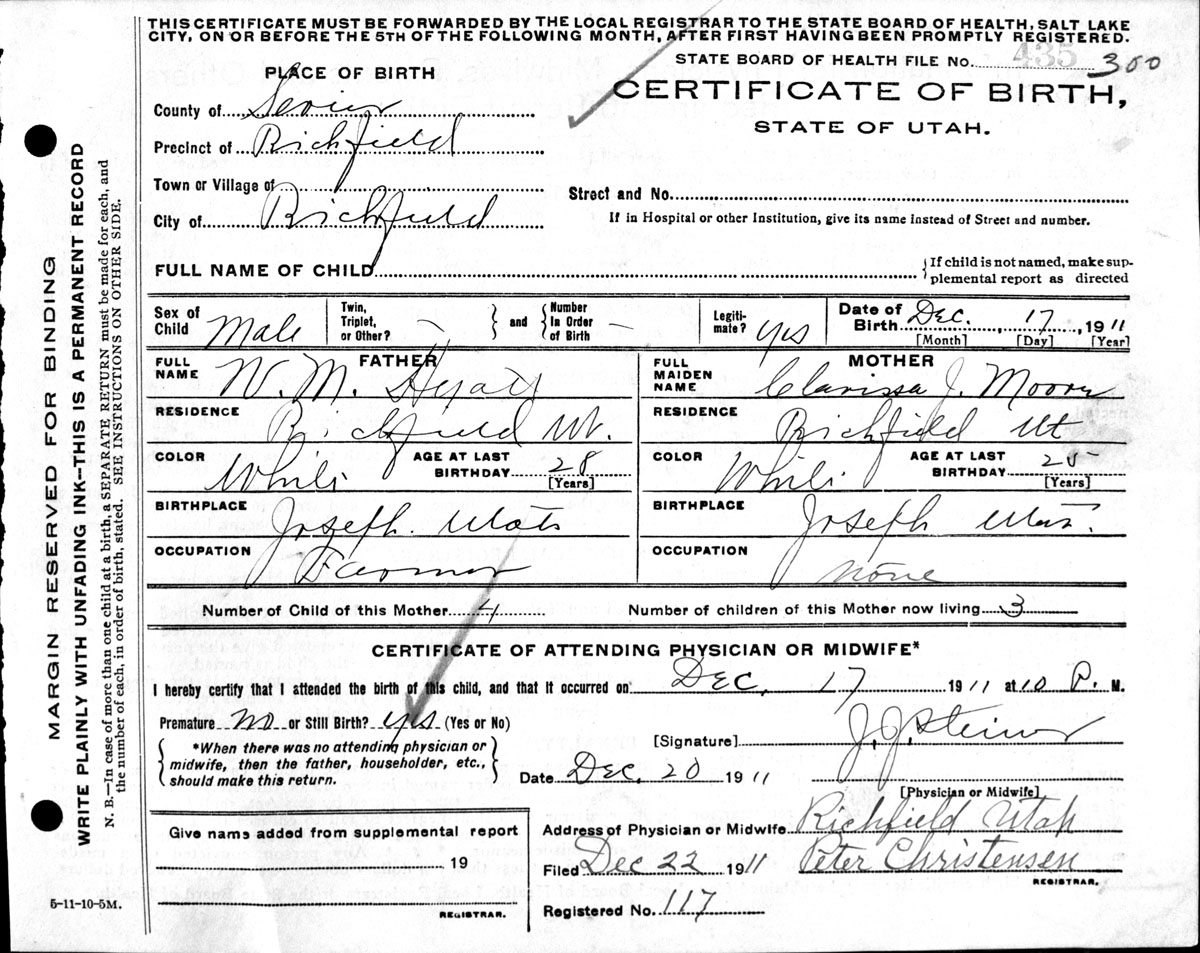 THIS CERTIFICATE MUST BE FORWARDED BY THE LOCAL REGISTRAR TO THE STATE BOARD OF HEALTH, SALT LAKE
CITY, ON OR BEFORE THE 5TH OF THE FOLLOWING MONTH, AFTER FIRST HAVING BEEN PROMPTLY REGISTERED.
435
STATE BOARD OF HEALTH FILE No. 300
PLACE OF BIRTH
CERTIFICATE OF BIRTH,
STATE OF UTAH.
County of Sevier
Precinct of Richfield
Town or Village of
Street and No.
City of Richfield
If in Hospital or other Institution, give its name instead of Street and number.
FULL NAME OF CHILD
{If child is not named, make sup-
plemental report as directed
Sex of Child Male
Twin, Triplet, or Other? –
and
Number In Order of Birth –
Legiti-mate? yes
Date of Birth Dec. 17, 1911
[Month] [Day] [Year]
FATHER
FULL NAME W. M. Hyatt
RESIDENCE Richfield Ut.
COLOR White
AGE AT LAST BIRTHDAY 28
[Years]
BIRTHPLACE Joseph. Utah
OCCUPATION Farmer
MOTHER
FULL MAIDEN NAME Clarissa J. Moore
RESIDENCE Richfield Ut
COLOR White
AGE AT LAST BIRTHDAY 25
[Years]
BIRTHPLACE Joseph
OCCUPATION None
Number of Child of this Mother 4 Number of children of this Mother now living 3
CERTIFICATE OF ATTENDING PHYSICIAN OR MIDWIFE*
I hereby certify that I attended the birth of this child, and that it occurred on Dec. 17 1911 at 10 P. M.
Premature no or Still Birth? yes (Yes or No)
*When there was no attending physician or
midwife, then the father, householder, etc.,
should make this return.
[Signature] J. J. Steiner
Date Dec. 20 1911
[Physician or Midwife]
Give name added from supplemental report
19
REGISTRAR.
Address of Physician or Midwife Richfield Utah
Filed Dec 22 1911 Peter Christensen
REGISTRAR.
Registered No. 117
5-11-10-5M.
MARGIN RESERVED FOR BINDING
WRITE PLAINLY WITH UNFADING INK—THIS IS A PERMANENT RECORD
N. B.—In case of more than one child at a birth, a SEPARATE RETURN must be made for each, and
the number of each, in order of birth, stated. SEE INSTRUCTIONS ON OTHER SIDE.